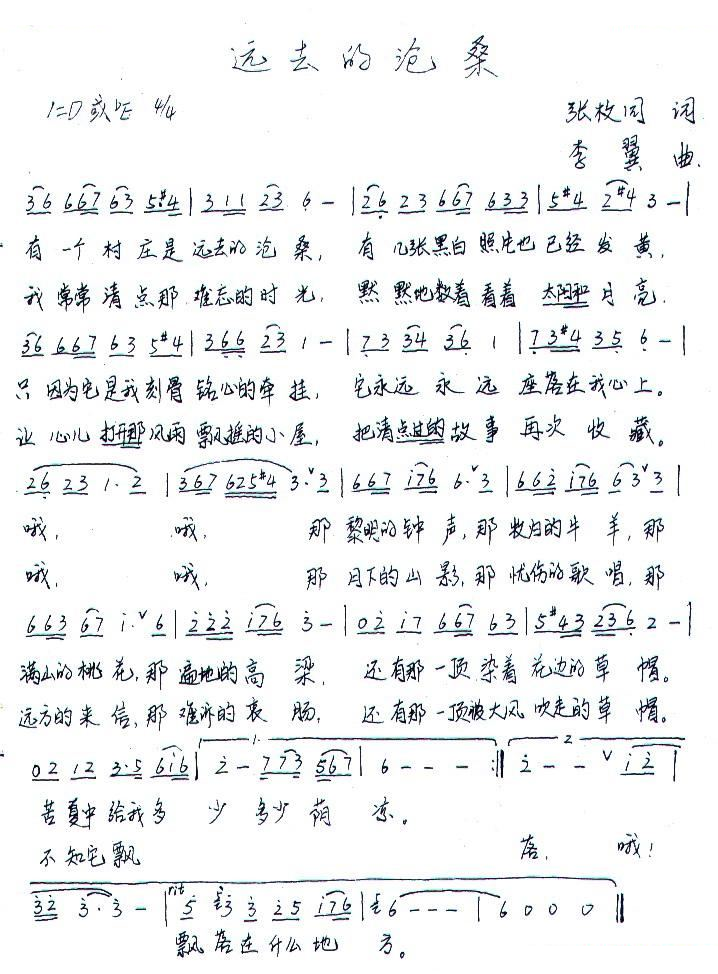 远去的沧桑
1=D或♭E 4/4
张枚同 词
李翼 曲
36 667 63 5#4 | 311 23 6 - | 26 23 667 633 | 5#4 2#4 3 - |
有一个村庄是远去的沧桑，有几张黑白照片也已经发黄，
我常常清点那难忘的时光，默默地数着看着太阳和月亮.
36 667 63 5#4 | 366 23 1 - | 73 34 36 1 | 73#4 35 6 - |
只因为它是我刻骨铭心的牵挂，它永远永远座落在我心上。
让心儿打开那风雨飘摇的小屋，把清点过的故事再次收藏。
26 23 1· 2 | 367 625#4 3·ˇ3 | 667 i76 6·ˇ3 | 662 i76 63ˇ3 |
哦，哦，那黎明的钟声，那牧归的牛羊，那
哦，哦，那月下的山影，那忧伤的歌唱，那
663 67 i·ˇ6 | 222 i76 3 - | 02 i7 667 63 | 5#43 236 2 - |
满山的桃花，那遍地的高粱，还有那一顶染着花边的草帽。
远方的来信，那难诉的衷肠，还有那一顶被大风吹走的草帽。
02 12 3·5 6i6 | 1. 2 - 773 567 | 6 - - - :‖ 2. 2 - - ˇ i2 |
苦夏中给我多少多少荫凉。
不知它飘落，哦！
32 3·3 - | rit 5 3 3 25 i76 | 6 - - - | 6 0 0 0 ‖
飘落在什么地方。